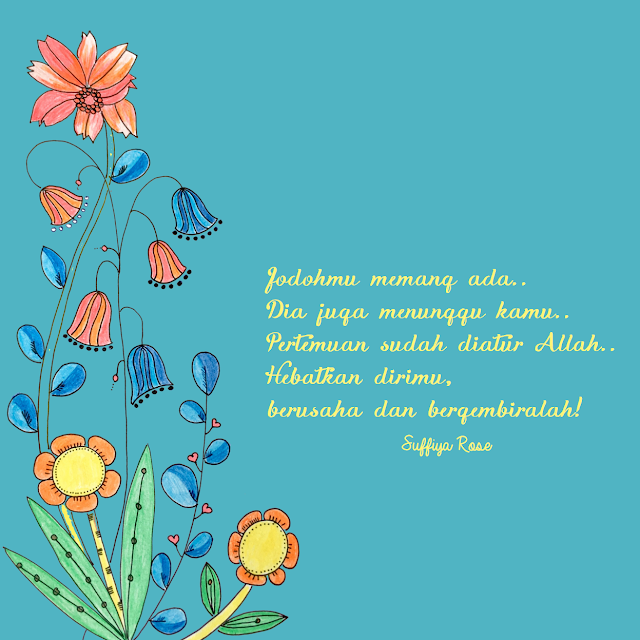 Jodohmu memang ada..
Dia juga menunggu kamu..
Pertemuan sudah diatur Allah..
Hebatkan dirimu,
berusaha dan bergembiralah!
Suffiya Rose